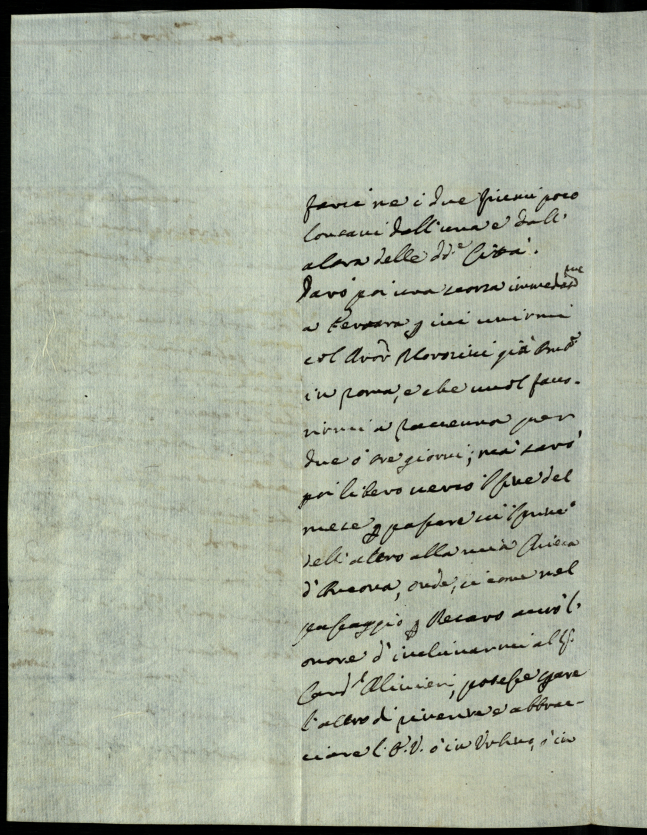 farsi ne i due fiumi poco
lontani dall'una e dall'
altra delle dd.e Città.
Darò poi una scorsa immediatame
a Ferrara p ivi unirmi
col Morosini già Amb.r
in Roma, e che vuol favo-
rirmi a Ravenna per
due ò tre giorni; mà sarò
poi libero verso il fine del
mese p passare ne i primi
dell'altro alla mia Chiesa
d'Ancona, onde, si come nel
passaggio p Pesaro avrò l'
onore d'inchinarmi al S.r
Card.l Olivieri, potessi sperare
l'altro di riverire e abbrac-
ciare l' ò in Urbino, ò in